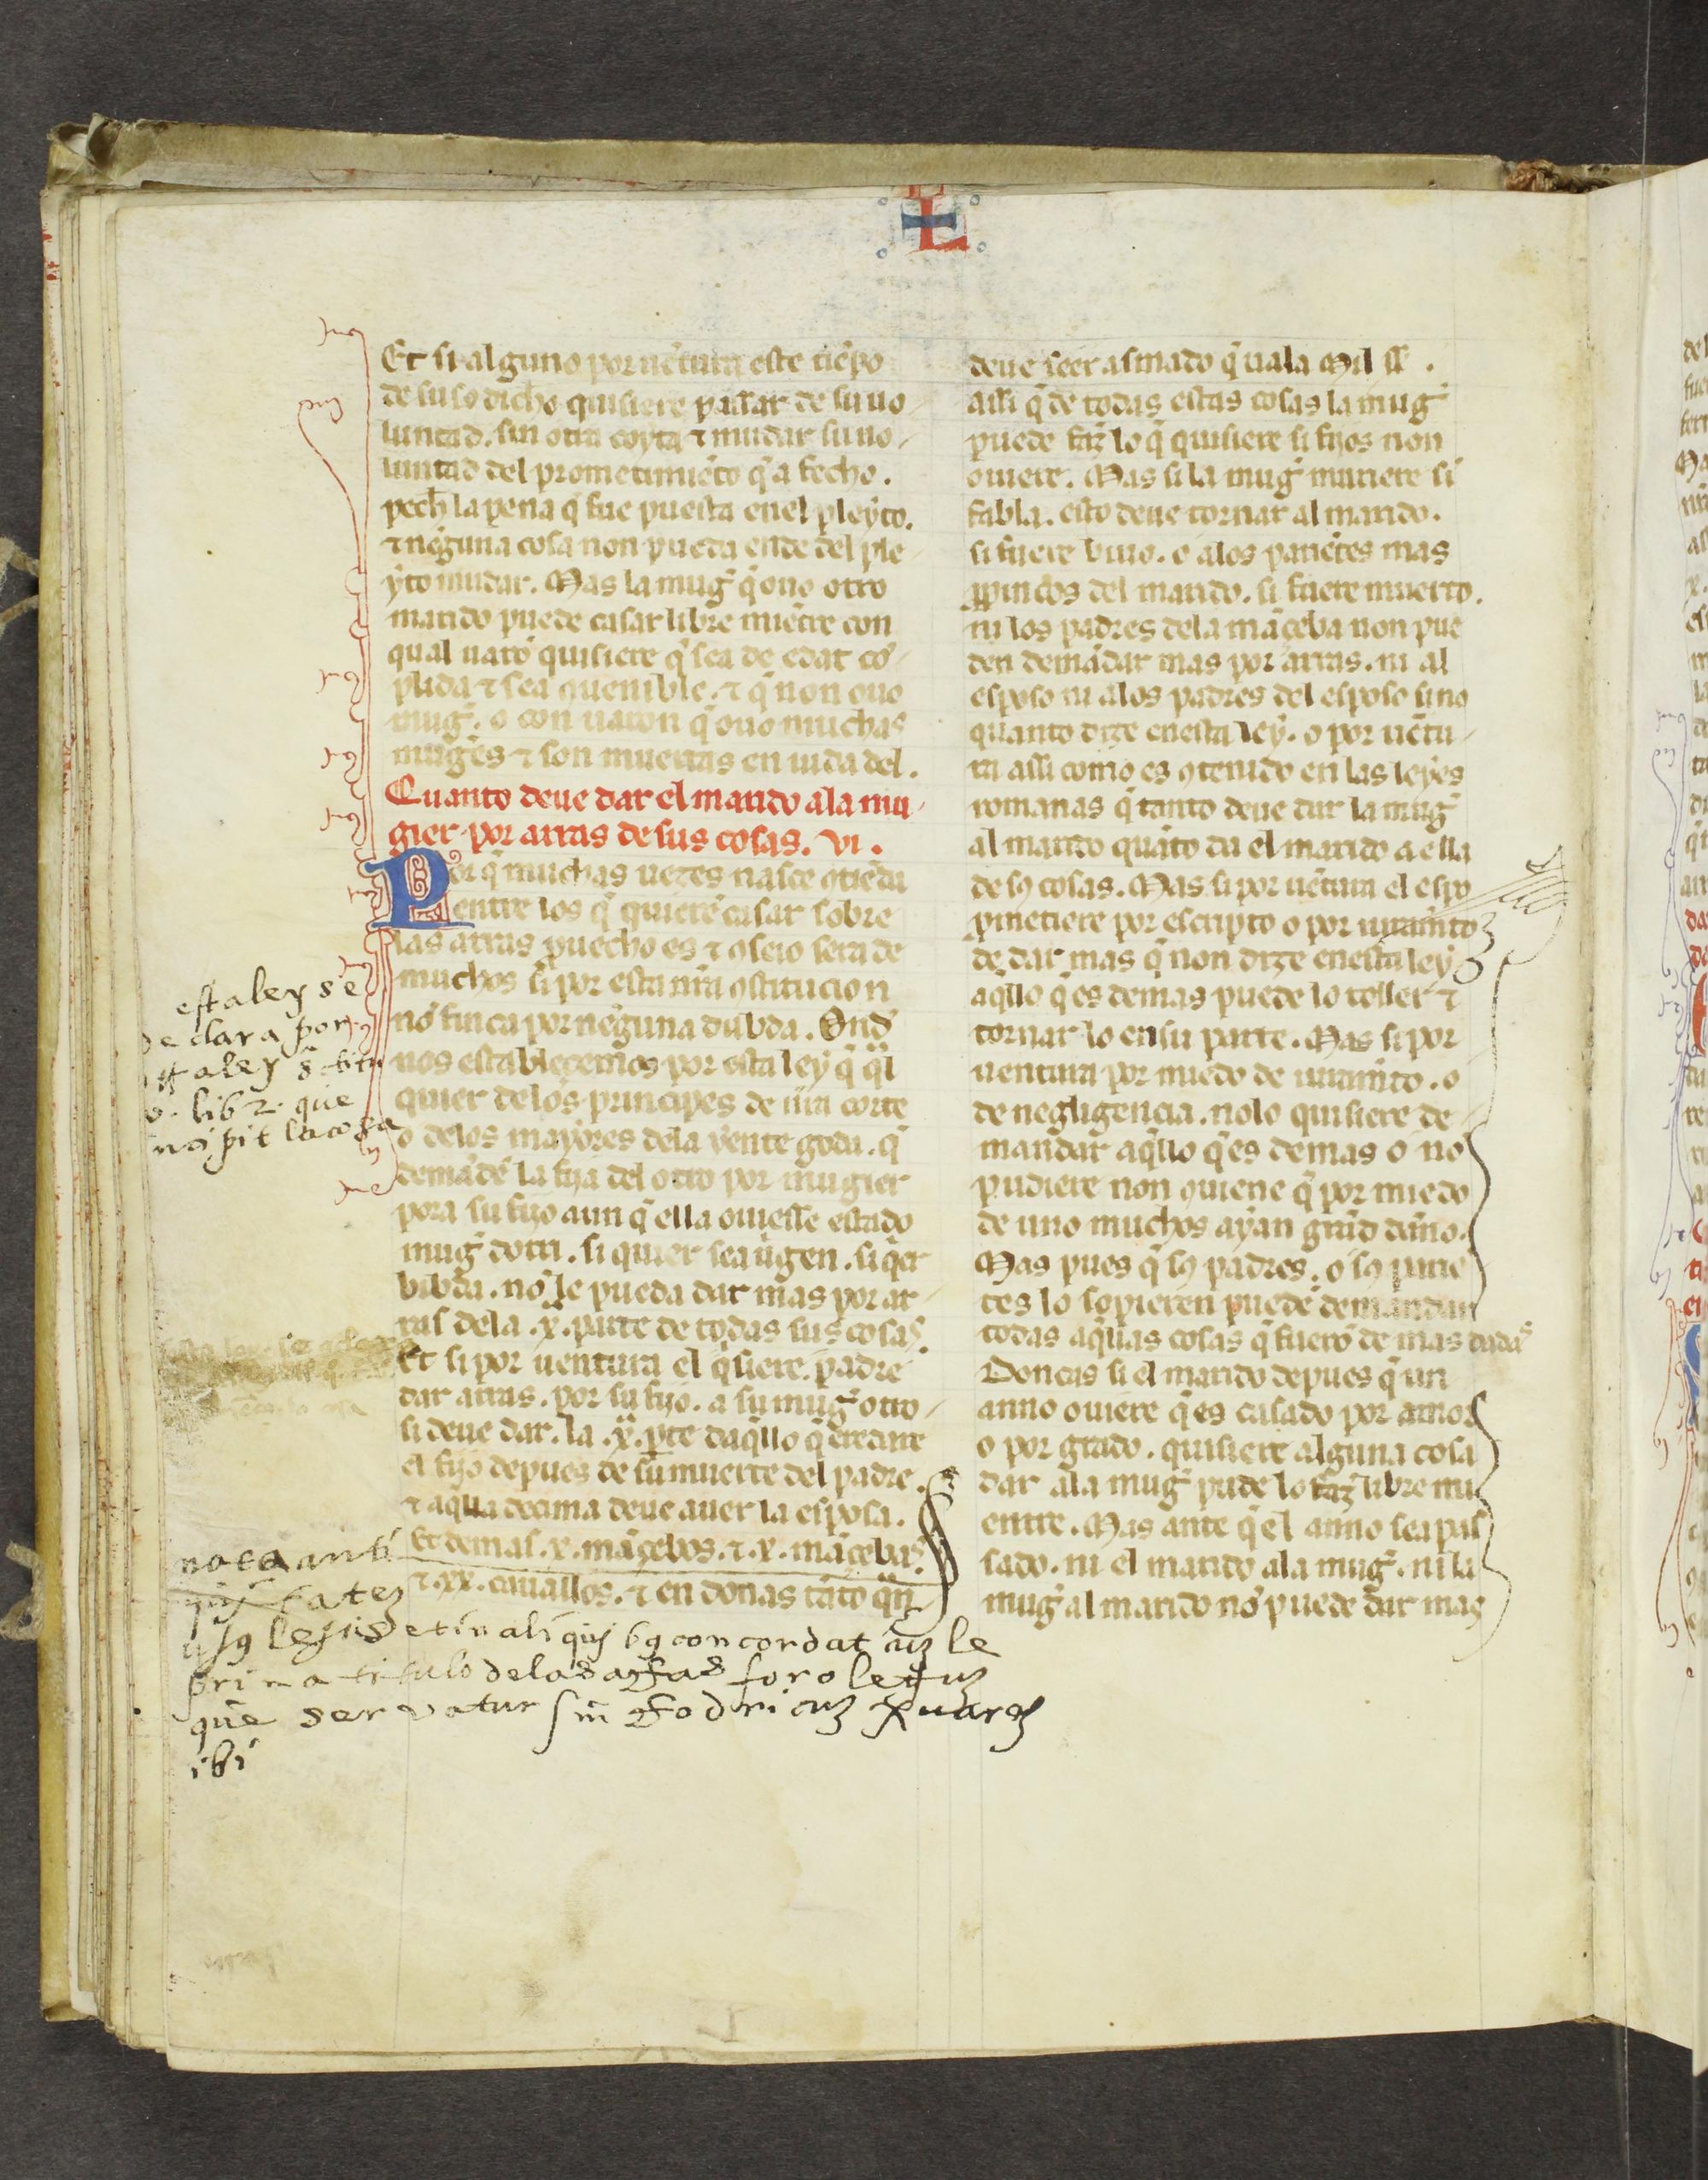 L
Et si alguno por uẽtura este tiẽpo
de suso dicho quisiere passar de su uo
luntad. sin otra coyta ⁊ mudar su uo
luntad del prometimiẽto q̃ a fecho.
pech̃ la pena q̃ fue puesta en el pleyto.
⁊ neguna cosa non pueda ende del ple
yto mudar. Mas la mug̃ q̃ ouo otro
marido puede casar libre miẽtre con
qual uarõ quisiere q̃ sea de edat cõ
plida ⁊ sea ꝯuenible. ⁊ q̃ non ouo
mug̃. o con uaron q̃ ouo muchas
mug̃es ⁊ son muertas en uida del.
Quanto deue dar el marido ala mu
gier por arras de sus cosas. VI.
Por q̃ muchas uezes nasce ꝯtiẽda
entre los q̃ quierẽ casar sobre
las arras puecho es ⁊ ꝯseio sera de
muchos si por esta nr̃a ꝯstitucion
nõ finca por neguna dubda. Ond̃
nos establecemos por esta ley q̃ q̃l
quier delos principes de nr̃a corte
o delos mayores dela yente goda. q̃
demãde la fija del otro por mugier
pora su fijo aun q̃ ella ouiesse estado
mug̃ dotri. si quier sea uỹgen. si q̃er
bibda. nõ le pueda dar mas por ar
ras dela .x. parte de todas sus cosas.
Et si por uentura el q̃siere padre
dar arras. por su fijo. a su mug̃ otro
si deue dar. la .x. p̱te daq̃llo q̃ eredare
el fijo depues de su muerte del padre.
⁊ aq̃lla decima deue auer la esposa.
Et demas .x. mãçebos. ⁊ .x. mãçebas.
⁊ .xx. cauallos. ⁊ en donas tãto q̃n
deue seer asmado q̃ uala Mil ss̃.
assi q̃ de todas estas cosas la mug̃
puede faz̃ lo q̃ quisiere si fijos non
ouiere. Mas si la mug̃ muriere si
fabla. esto deue tornar al marido.
si fuere biuo. o alos pariẽtes mas
ꝓpincos del marido. si fuere muerto.
ni los padres dela mãçeba non pue
den demãdar mas por arras. ni al
esposo ni alos padres del esposo sino
quanto dize en esta ley. o por uẽtu
ra assi como es ꝯtenido en las leyes
romanas q̃ tanto deue dar la mug̃
al marito quãto da el marido a ella
de sꝯ cosas. Mas si por uẽtura el espo
ꝓmetiere por escripto o por iuramẽto
de dar mas q̃ non dize en esta ley
aq̃llo q̃ es demas puede lo toller ⁊
tornar lo en su parte. Mas si por
uentura por miedo de iuramẽto. o
de negligencia. nolo quisiere de
mandar aq̃llo q̃ es demas o no
pudiere non ꝯuiene q̃ por miedo
de uno muchos ayan grãd dãno.
Mas pues q̃ sꝯ padres. o sꝯ parie
tes lo sopieren puedẽ demandar
todas aq̃llas cosas q̃ fuerõ de mas dadas
Doncas si el marido depues q̃ un
anno ouiere q̃ es casado por amor
o por grado. quisiere alguna cosa
dar ala mug̃ puede lo faz̃ libre mi
entre. Mas ante q̃ el anno sea pas
sado. ni el marido ala mug̃. ni la
mug̃ al marido nõ puede dar mas
esta ley se
declara por
sta ley
lib 2. que
incipit la cosa
nota
legis et in concordat cuz le
prima titulo delas arras foro leguz
que servatur Rodricuz Xuarez
ibi